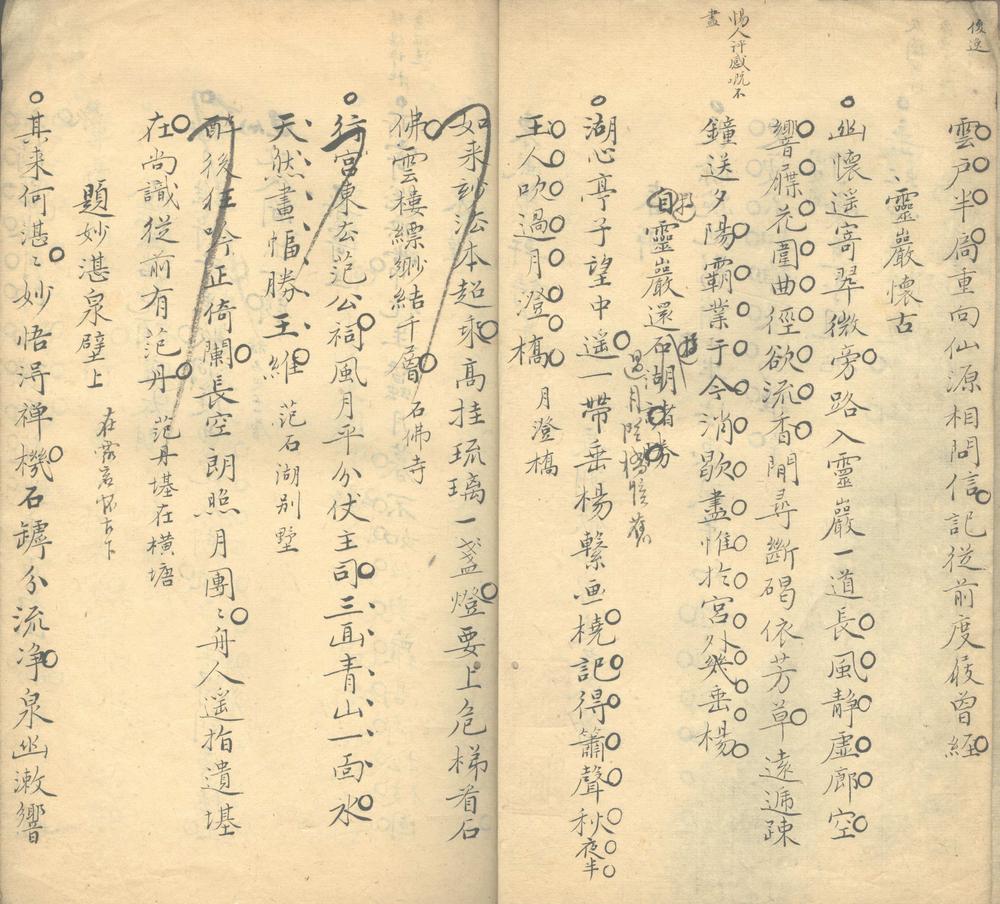 後逸
雲戶半扃重向仙源相問信記從前度屐曾經
靈巖懷古
幽懷遥寄翠微旁路入靈巖一道長風静虛廊空
響屧花圍曲徑欲流香閒尋斷碣依芳草遠遞疎
鐘送夕陽霸業于今消歇盡惟於宮外幾垂楊
惕人評感慨不
盡
自靈巖還石湖諸勝
湖心亭子望中遥一帶垂楊繫画橈記得簫聲秋夜半
玉人吹過月澄橋 月澄橋
如来玅法本超乘高挂琉璃一盞燈要上危梯看石
佛雲棲縹緲結千層 石佛寺
行宮東去范公祠風月平分伏主司三面青山一面水
天然畫幅勝王維 范石湖别墅
醉後狂吟正倚闌長空朗照月團〻舟人遥指遺基
在尚識從前有范丹 范丹基在横塘
題妙湛泉壁上
其来何湛〻妙悟淂禅機石罅分流净泉幽漱響